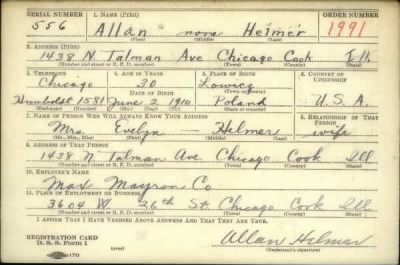 SERIAL NUMBER 1. NAME (Print) ORDER NUMBER
556 Allan none Helmer 1991
(First) (Middle) (Last)
2. ADDRESS (Print)
1438 N. Talman Ave Chicago Cook Ill.
(Number and street or R. F. D. number) (Town) (County) (State)
3. TELEPHONE 4. AGE IN YEARS 5. PLACE OF BIRTH 6. COUNTRY OF CITIZENSHIP
Chicago 30 Lowicz
DATE OF BIRTH
Humboldt 1581 June 2 1910 Poland U.S.A.
(Exchange) (Number) (Mo.) (Day) (Yr.) (State or country)
7. NAME OF PERSON WHO WILL ALWAYS KNOW YOUR ADDRESS 8. RELATIONSHIP OF THAT PERSON
Mrs. Evelyn Helmer wife
(Mr., Mrs., Miss) (First) (Middle) (Last)
9. ADDRESS OF THAT PERSON
1438 N. Talman Ave. Chicago Cook Ill
(Number and street or R. F. D. number) (Town) (County) (State)
10. EMPLOYER'S NAME
Max Mayron Co
11. PLACE OF EMPLOYMENT OR BUSINESS
3604 W. 26th St. Chicago Cook Ill
(Number and street or R. F. D. number) (Town) (County) (State)
I AFFIRM THAT I HAVE VERIFIED ABOVE ANSWERS AND THAT THEY ARE TRUE.
REGISTRATION CARD
D. S. S. Form 1 (over) Allan Helmer
(Registrant's signature)